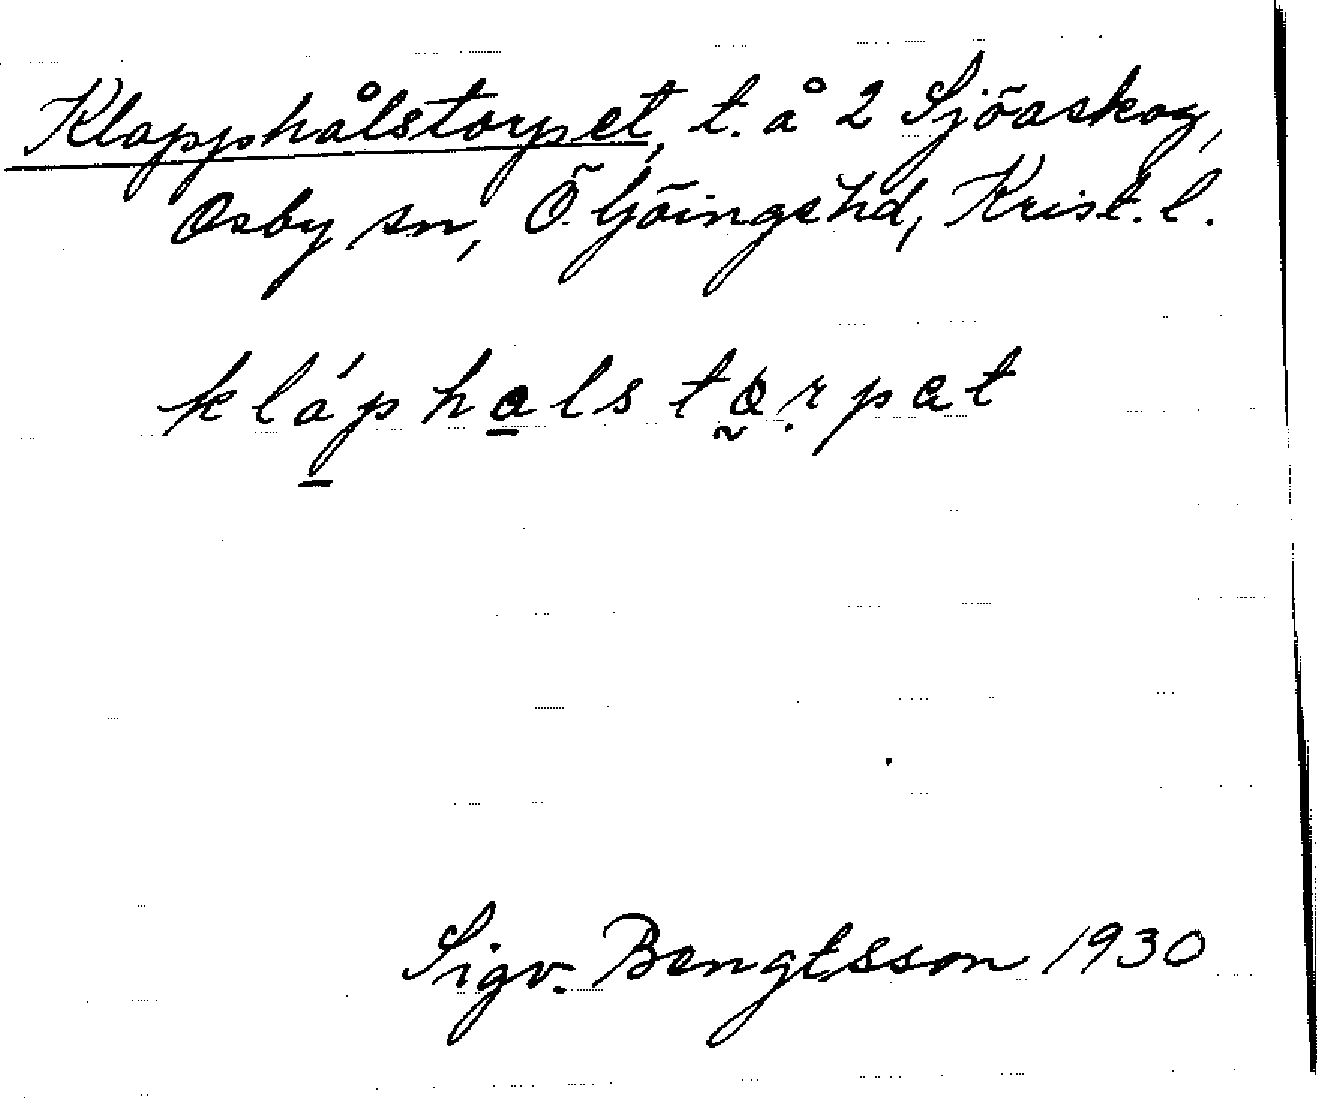 Klapphålstorpet, t. å 2 Sjöaskog,
Osby sn, Ö. Göingehd, Krist. l.
kláphalstørpat
Sigv. Bengtsson 1930